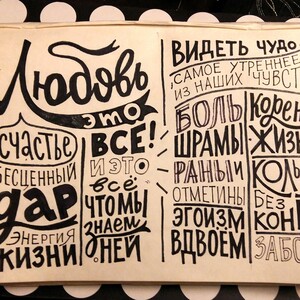 Любовь
это
счастье
бесценный
дар
энергия
жизни
ВСЁ!
И ЭТО
всё
что мы
знаем
о ней
ВИДЕТЬ ЧУДО
САМОЕ УТРЕННЕЕ
ИЗ НАШИХ ЧУВСТВ
БОЛЬ
ШРАМЫ
РАНЫ
ОТМЕТИНЫ
ЭГОИЗМ
ВДВОЁМ
ЖИЗ
БЕЗ
КОН